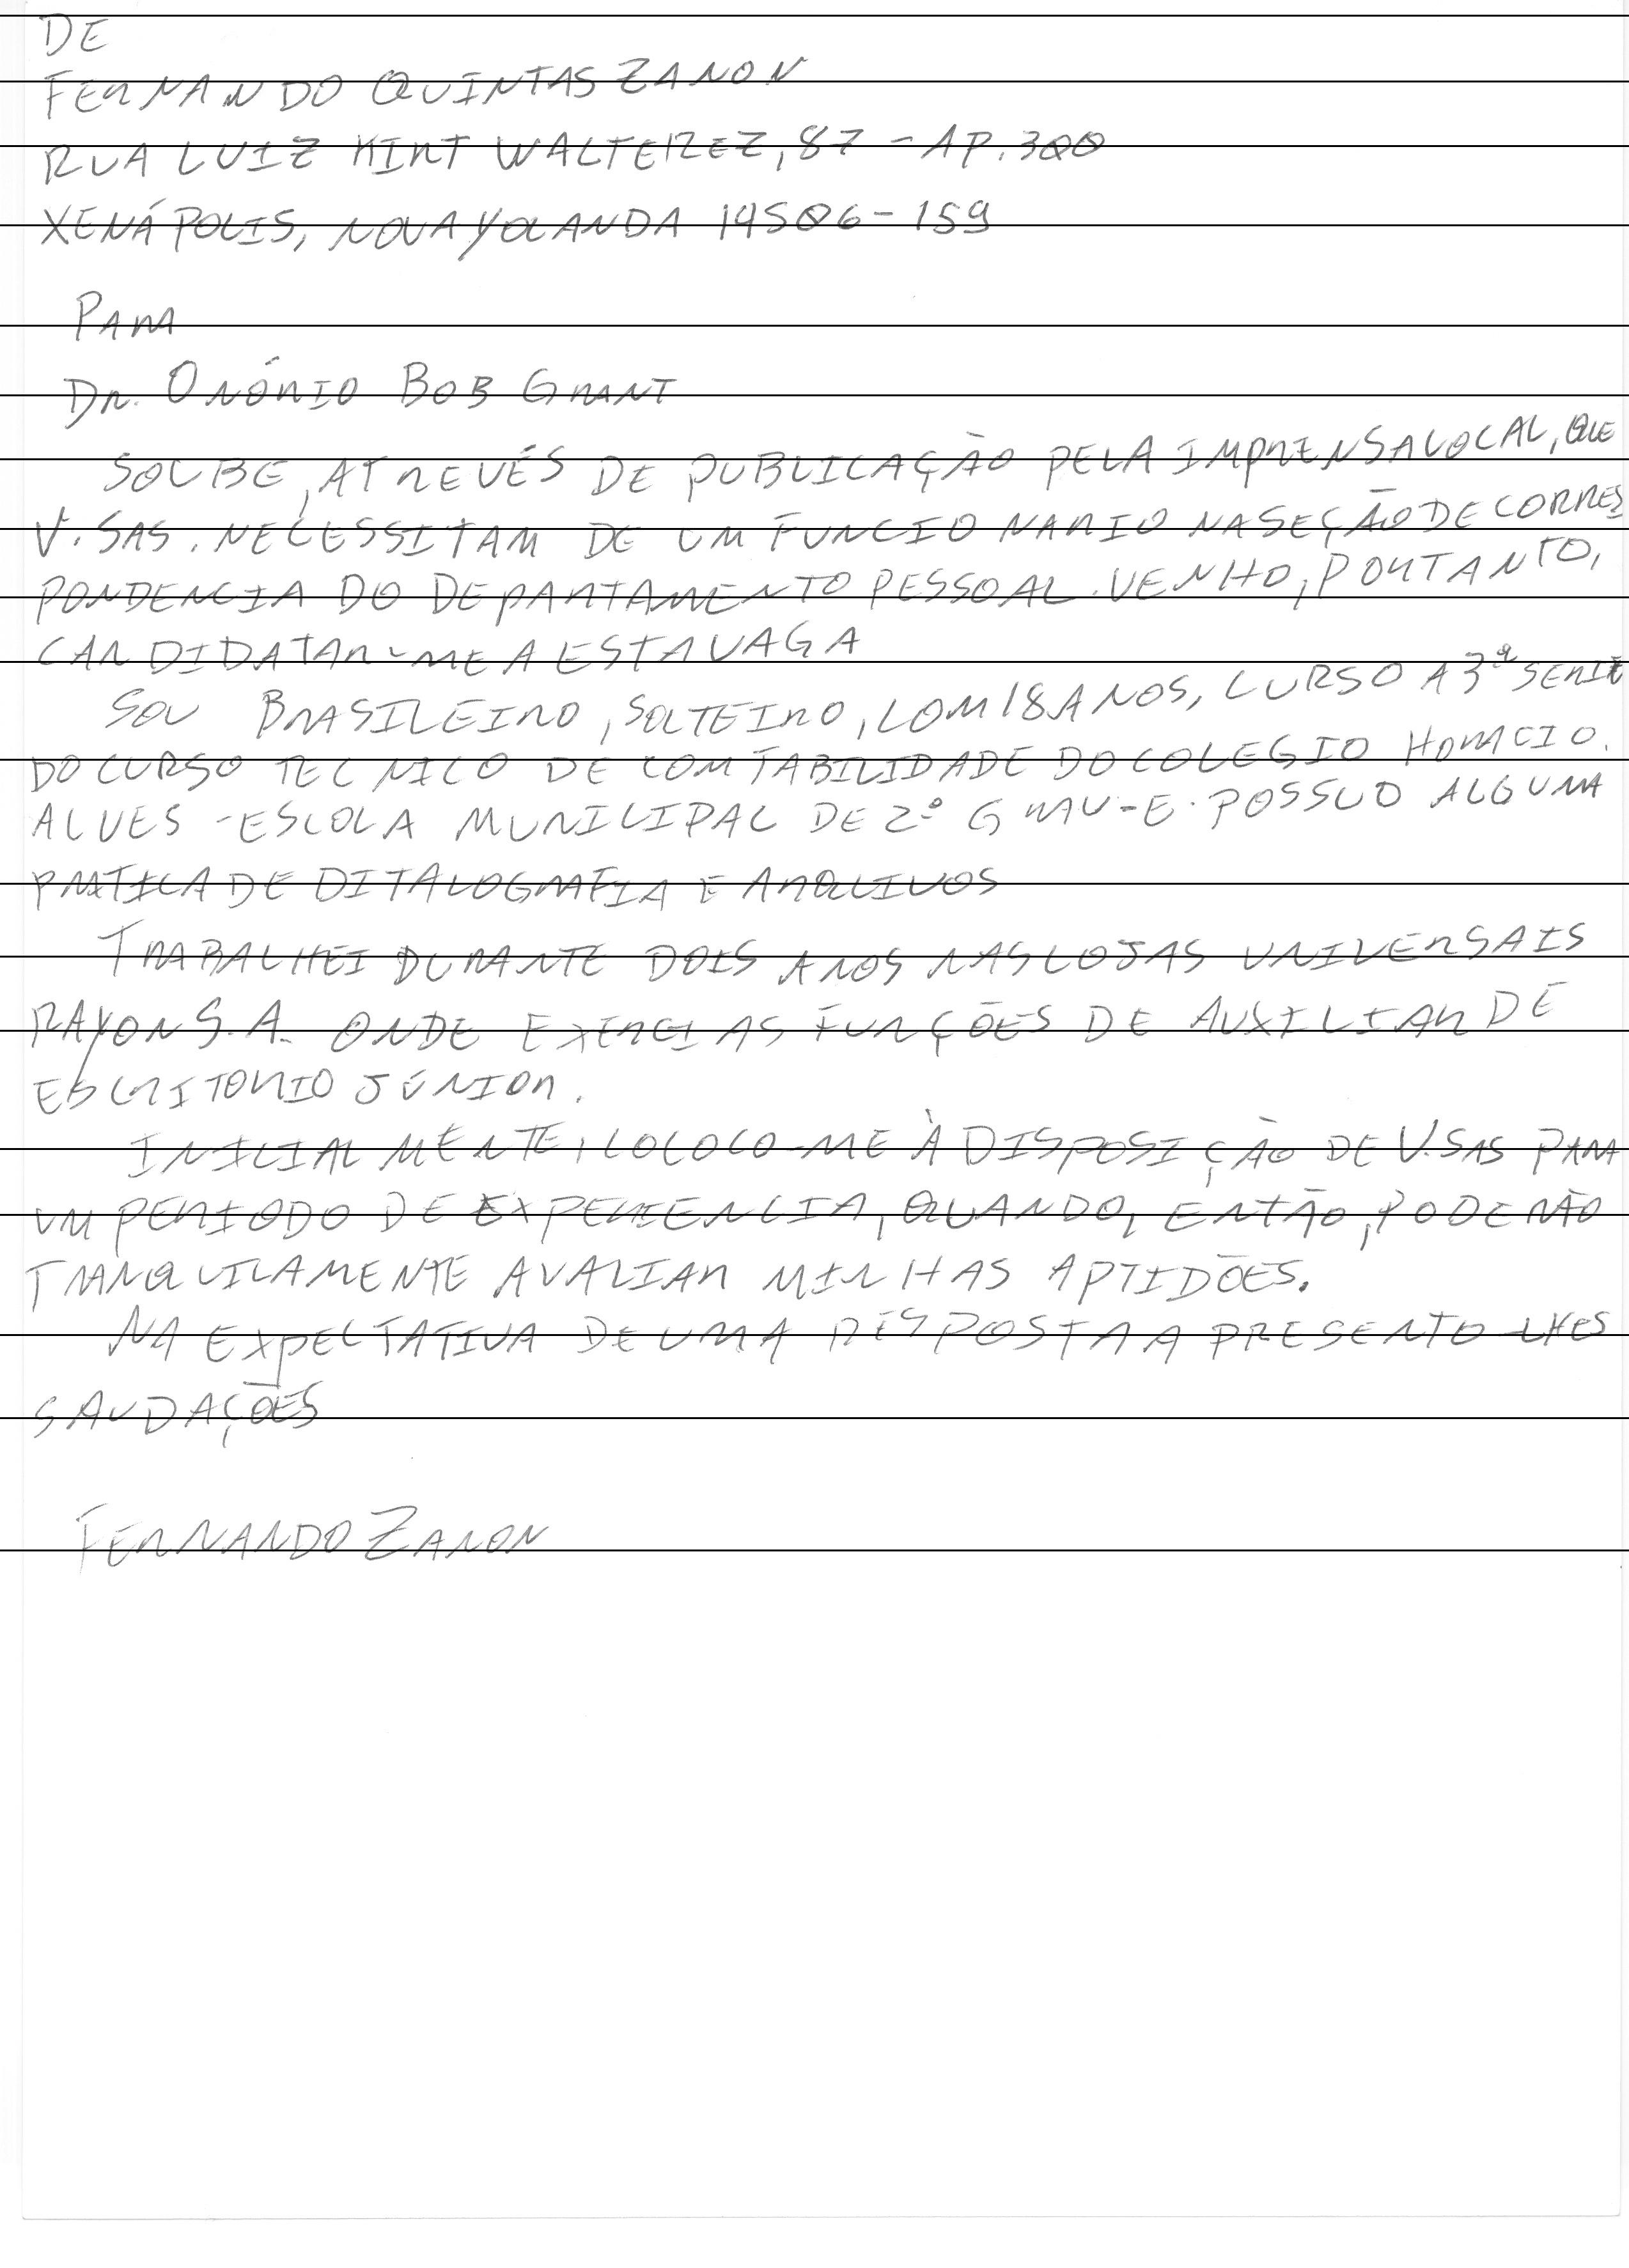 DE
FERNANDO QUINTAS ZANON
RUA LUIZ KIRT WALTEREZ, 87 - AP. 300
XENÁPOLIS, NOVA YOLANDA 14506-159
PARA
DR. ONÓRIO BOB GRANT
SOUBE, ATREVÉS DE PUBLICAÇÃO PELA IMPRENSA LOCAL, QUE
V. SAS. NECESSITAM DE UM FUNCIONARIO NA SEÇÃO DE CORRES
PONDENCIA DO DEPARTAMENTO PESSOAL. VENHO, PORTANTO,
CANDIDATAR-ME A ESTA VAGA
SOU BRASILEIRO, SOLTEIRO, COM 18 ANOS, CURSO A 3ª SERIE
DO CURSO TECNICO DE COMTABILIDADE DO COLEGIO HORACIO
ALVES - ESCOLA MUNICIPAL DE 2º GRAU - E POSSUO ALGUMA
PRATICA DE DITALOGRAFIA E ARQUIVOS
TRABALHEI DURANTE DOIS ANOS NAS LOJAS UNIVERSAIS
RAYON S.A. ONDE EXERCI AS FUNÇÕES DE AUXILIAR DE
ESCRITORIO JÚNIOR.
INICIALMENTE, COLOCO-ME À DISPOSIÇÃO DE V.SAS PARA
UM PERIODO DE EXPERIENCIA, QUANDO, ENTÃO, PODERÃO
TRANQUILAMENTE AVALIAR MINHAS APTIDÕES.
NA EXPECTATIVA DE UMA RESPOSTA APRESENTO-LHES
SAUDAÇÕES
FERNANDO ZANON